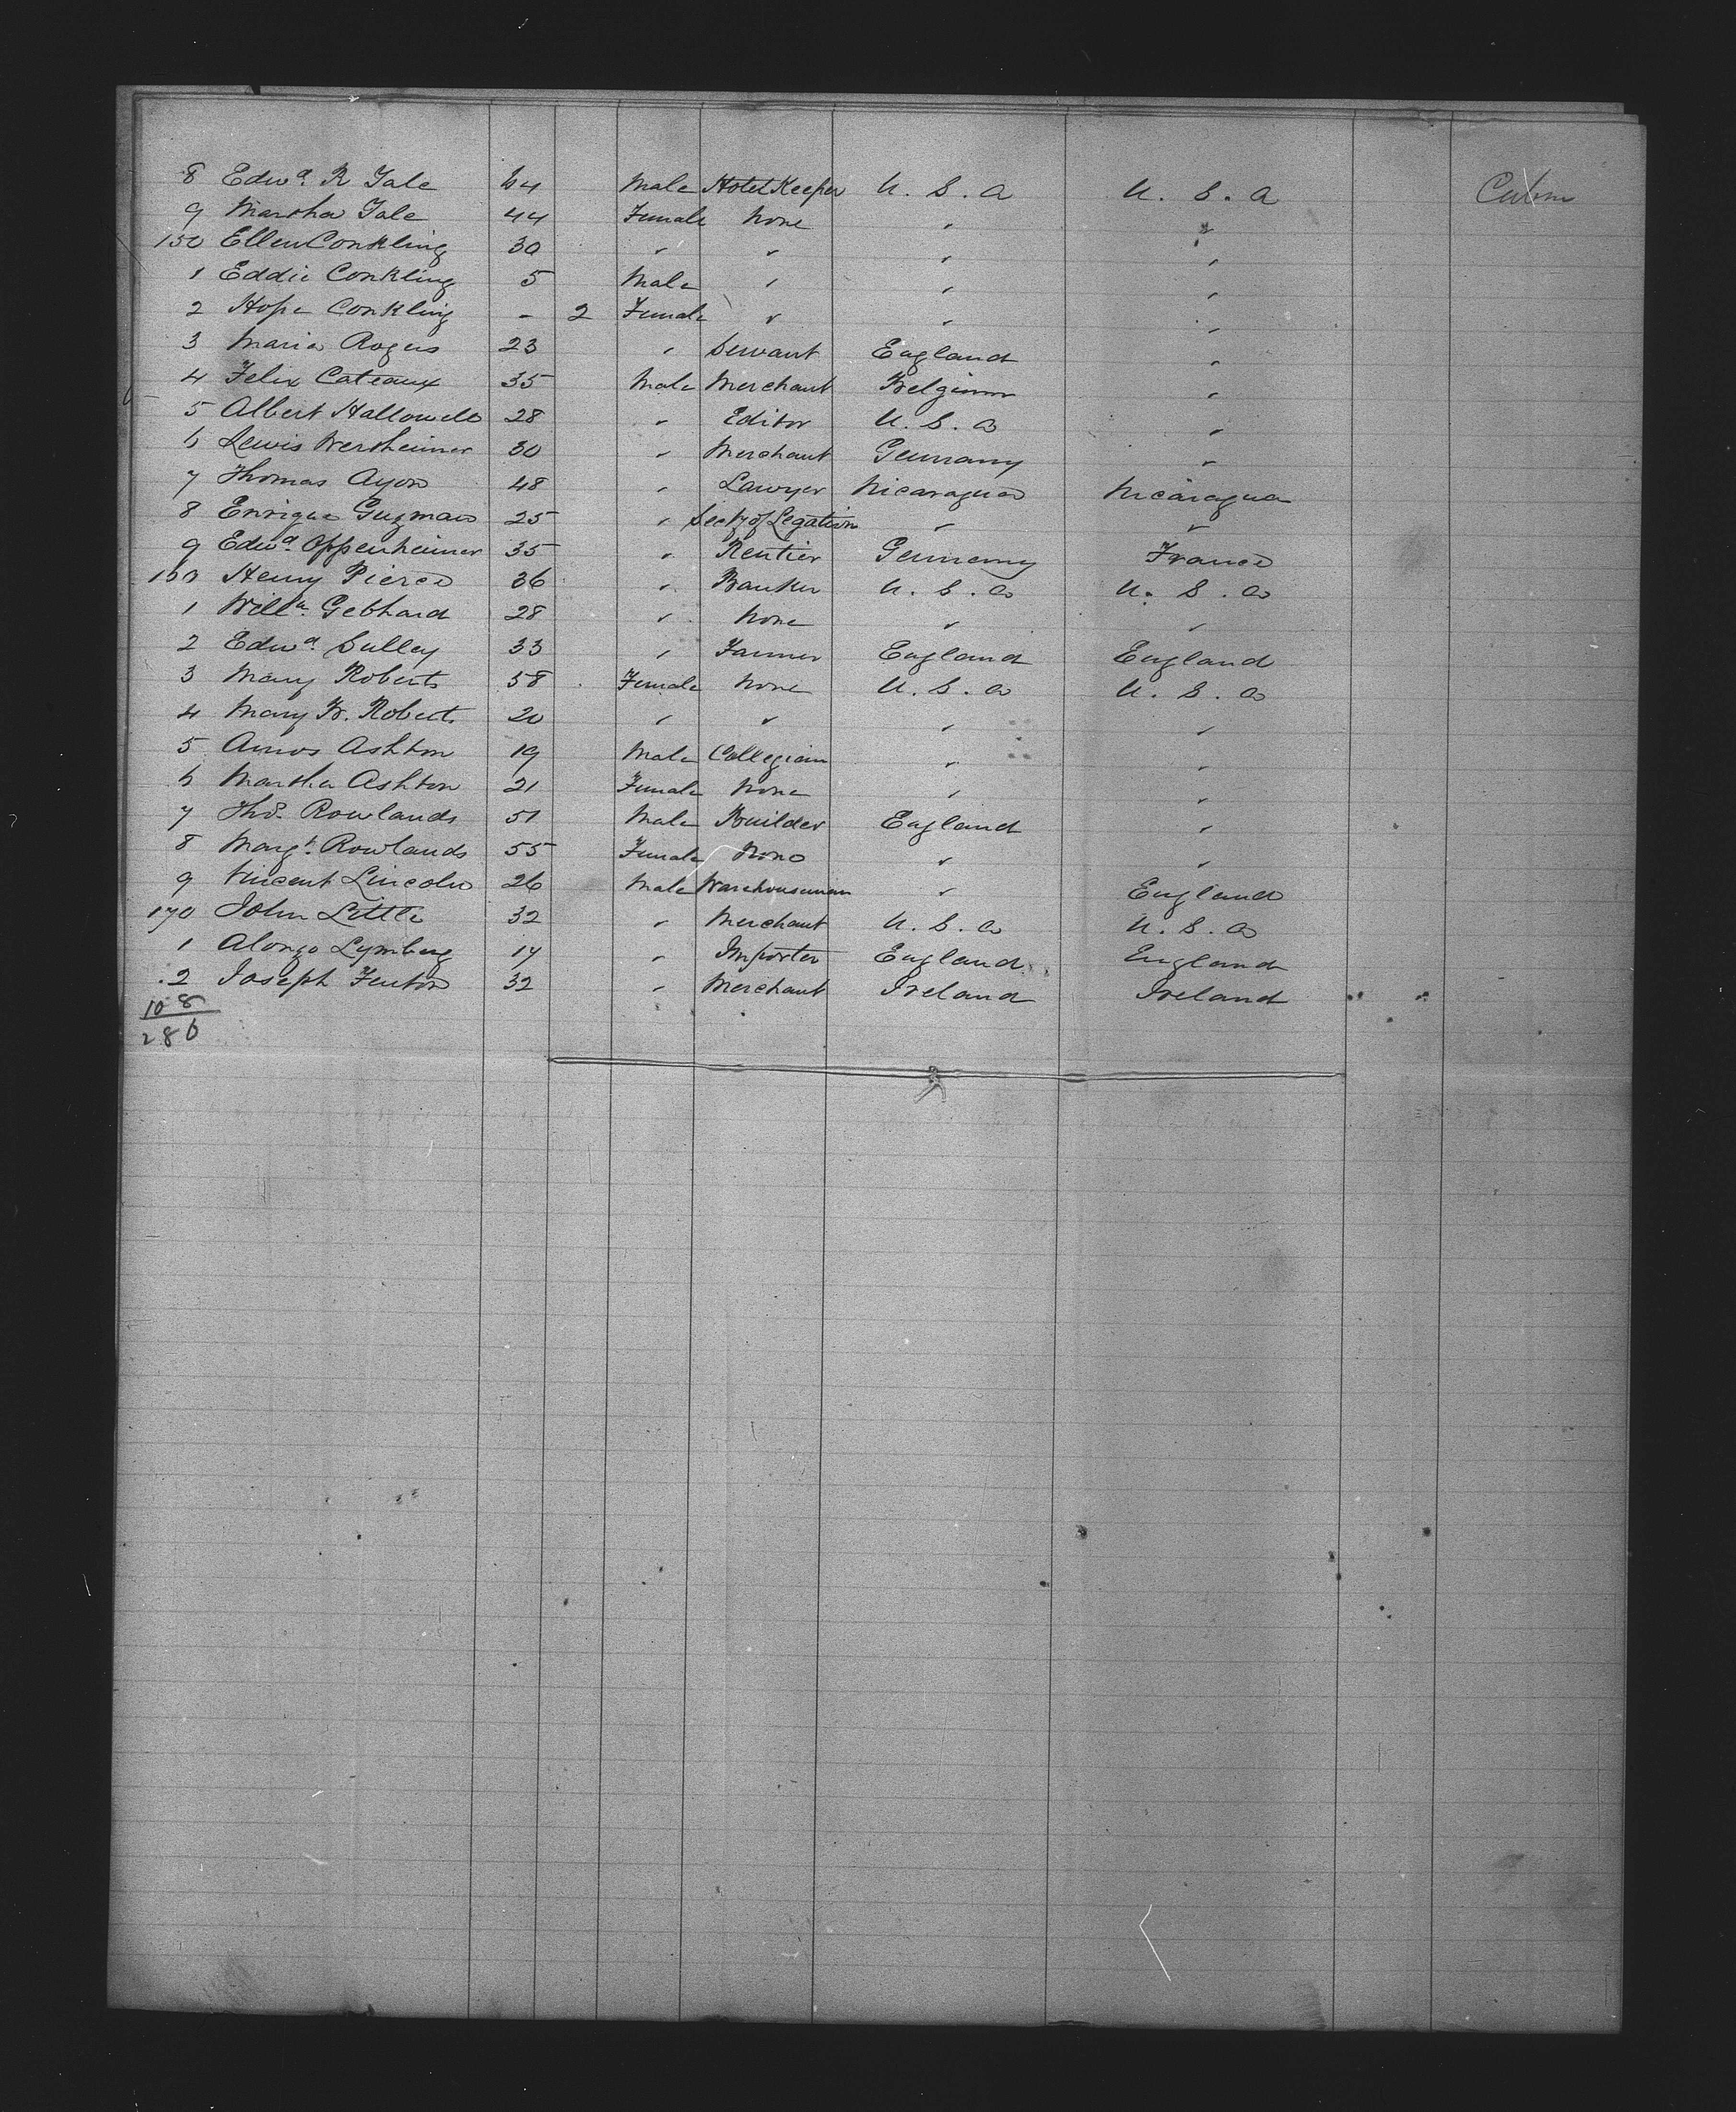 8 Edwd. R Tale 64 Male Hotel Keeper U. S. A U. S. A Cabin
9 Martha Tale 44 Female None " "
150 Ellen Conkling 30 " " " "
1 Eddie Conkling 5 Male " " "
2 Hope Conkling - 2 Female " " "
3 Maria Rogers 23 " Servant England "
4 Felix Cateaux 35 Male Merchant Belgium "
5 Albert Hallowell 28 " Editor U. S. A "
6 Lewis Wertheimer 30 " Merchant Germany "
7 Thomas Ayon 48 " Lawyer Nicaragua Nicaragua
8 Enrique Guzman 25 " Secty of Legation " "
9 Edwd. Oppenheimer 35 " Rentier Germany France
160 Henry Pierce 36 " Banker U. S. A U. S. A
1 Willm. Gebhard 28 " None " "
2 Edwd. Sulley 33 " Farmer England England
3 Mary Roberts 58 Female None U. S. A U. S. A
4 Mary W. Roberts 20 " " " "
5 Amos Ashton 19 Male Collegian " "
6 Martha Ashton 21 Female None " "
7 Thos. Rowlands 51 Male Builder England "
8 Margt. Rowlands 55 Female None " "
9 Vincent Lincoln 26 Male Warehouseman " England
170 John Little 32 " Merchant U. S. A U. S. A
1 Alonzo 17 " Importer England England
2 Joseph Fenton 32 " Merchant Ireland Ireland
108
286